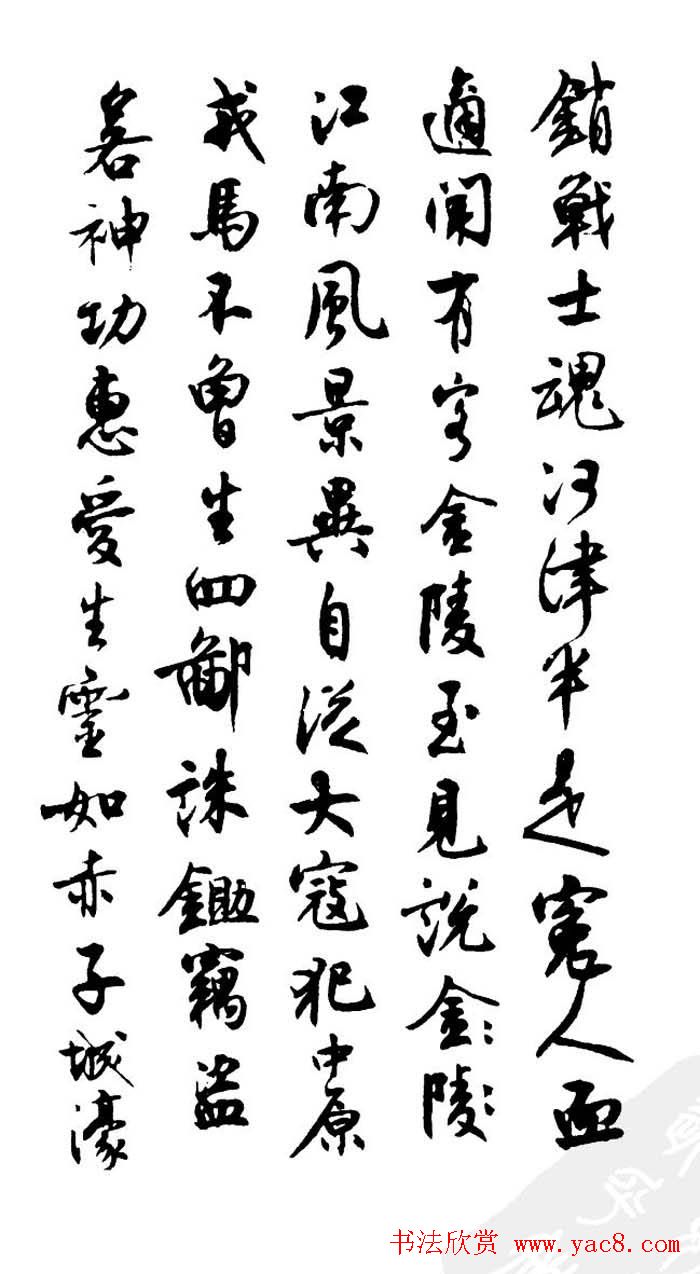 鎖戰士魂河津半是寃人血
適聞有客金陵至見說金〻陵〻
江南風景異自從大寇犯中原
戎馬不曾生四鄙誅鋤竊盜
若神功惠愛生靈如赤子城濠
书法欣赏 www.yac8.com